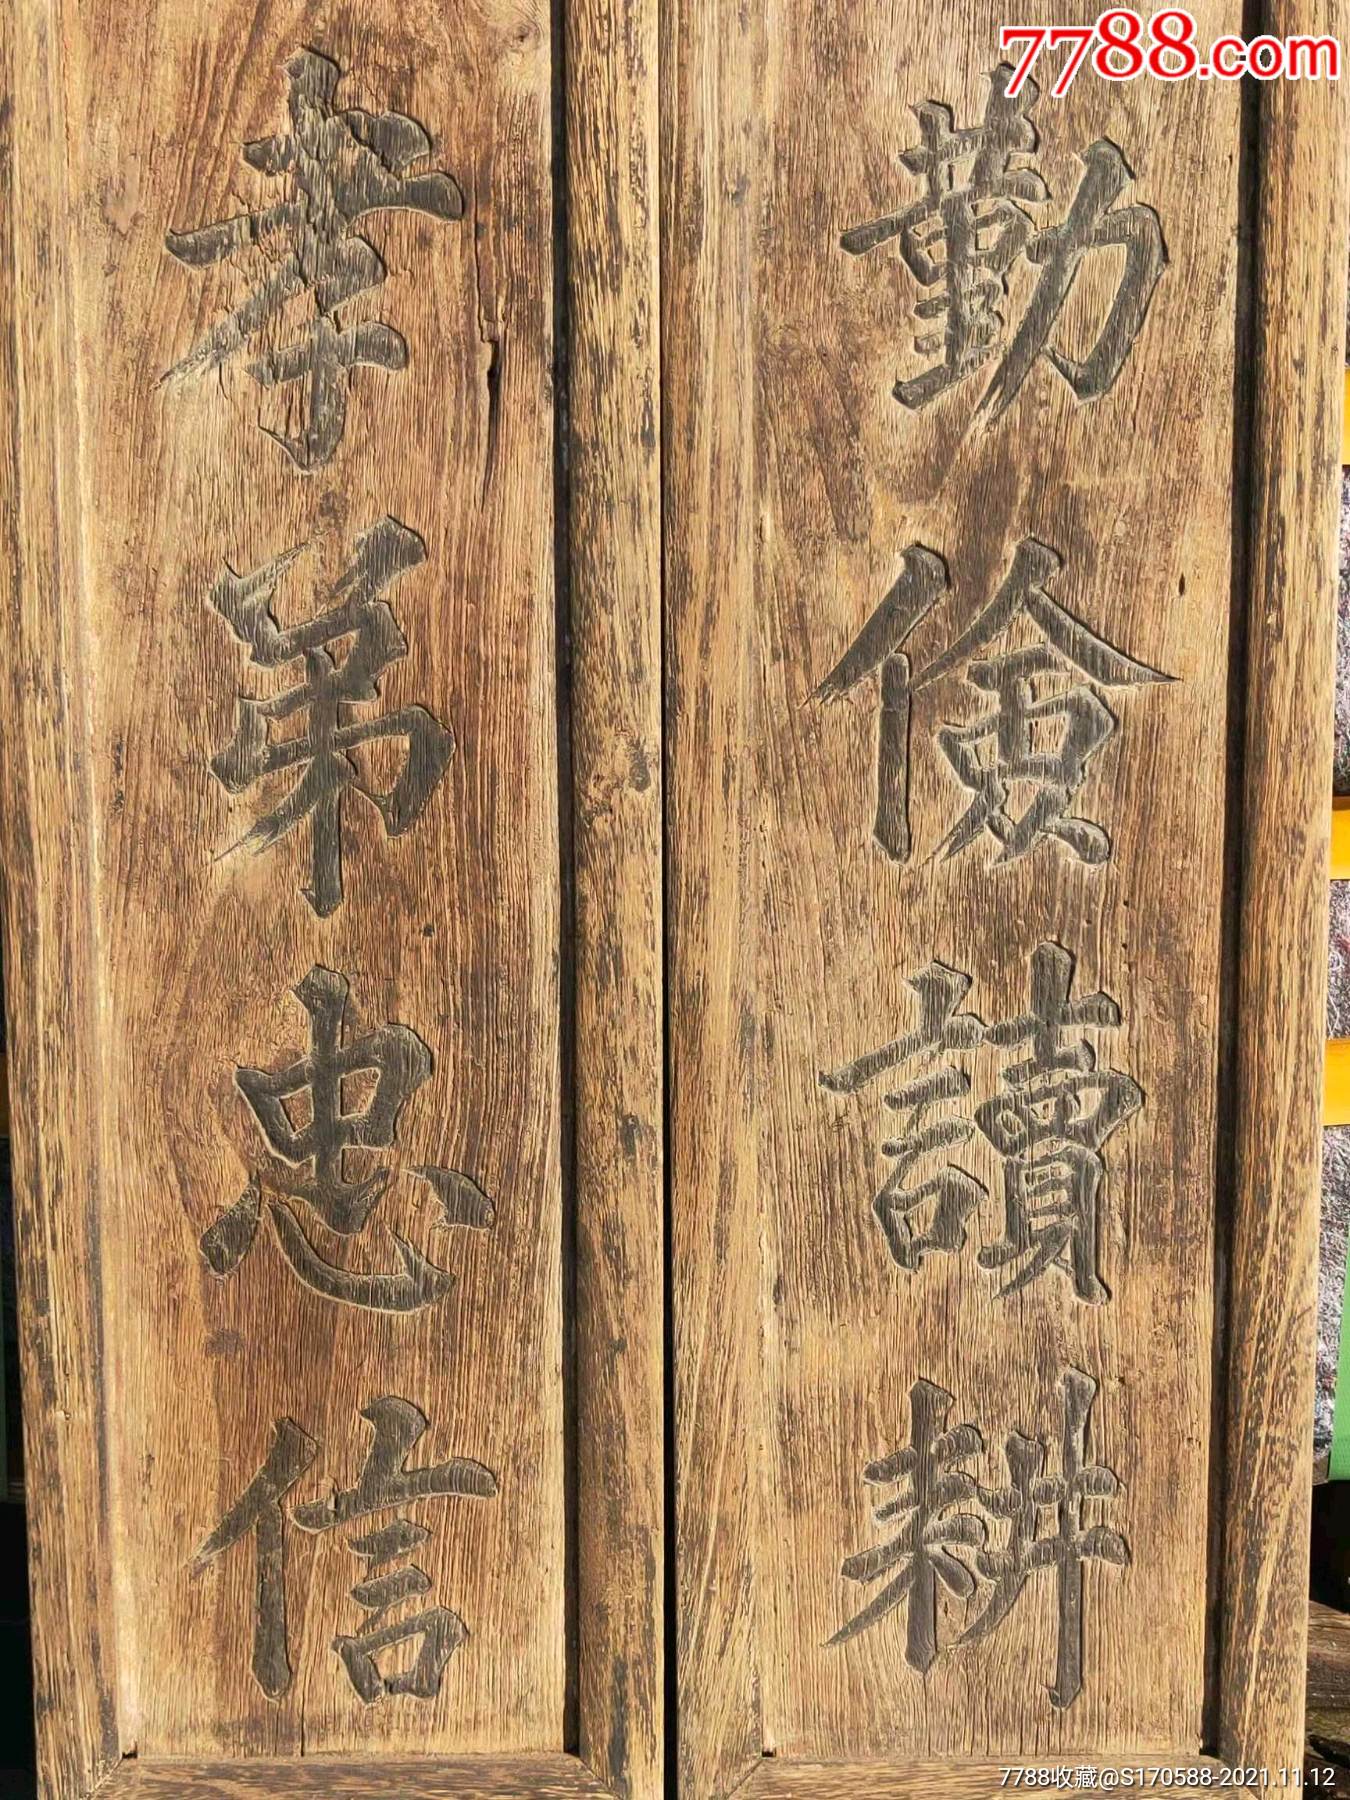 勤儉讀耕
孝弟忠信
7788.com
7788收藏@S170588-2021.11.12